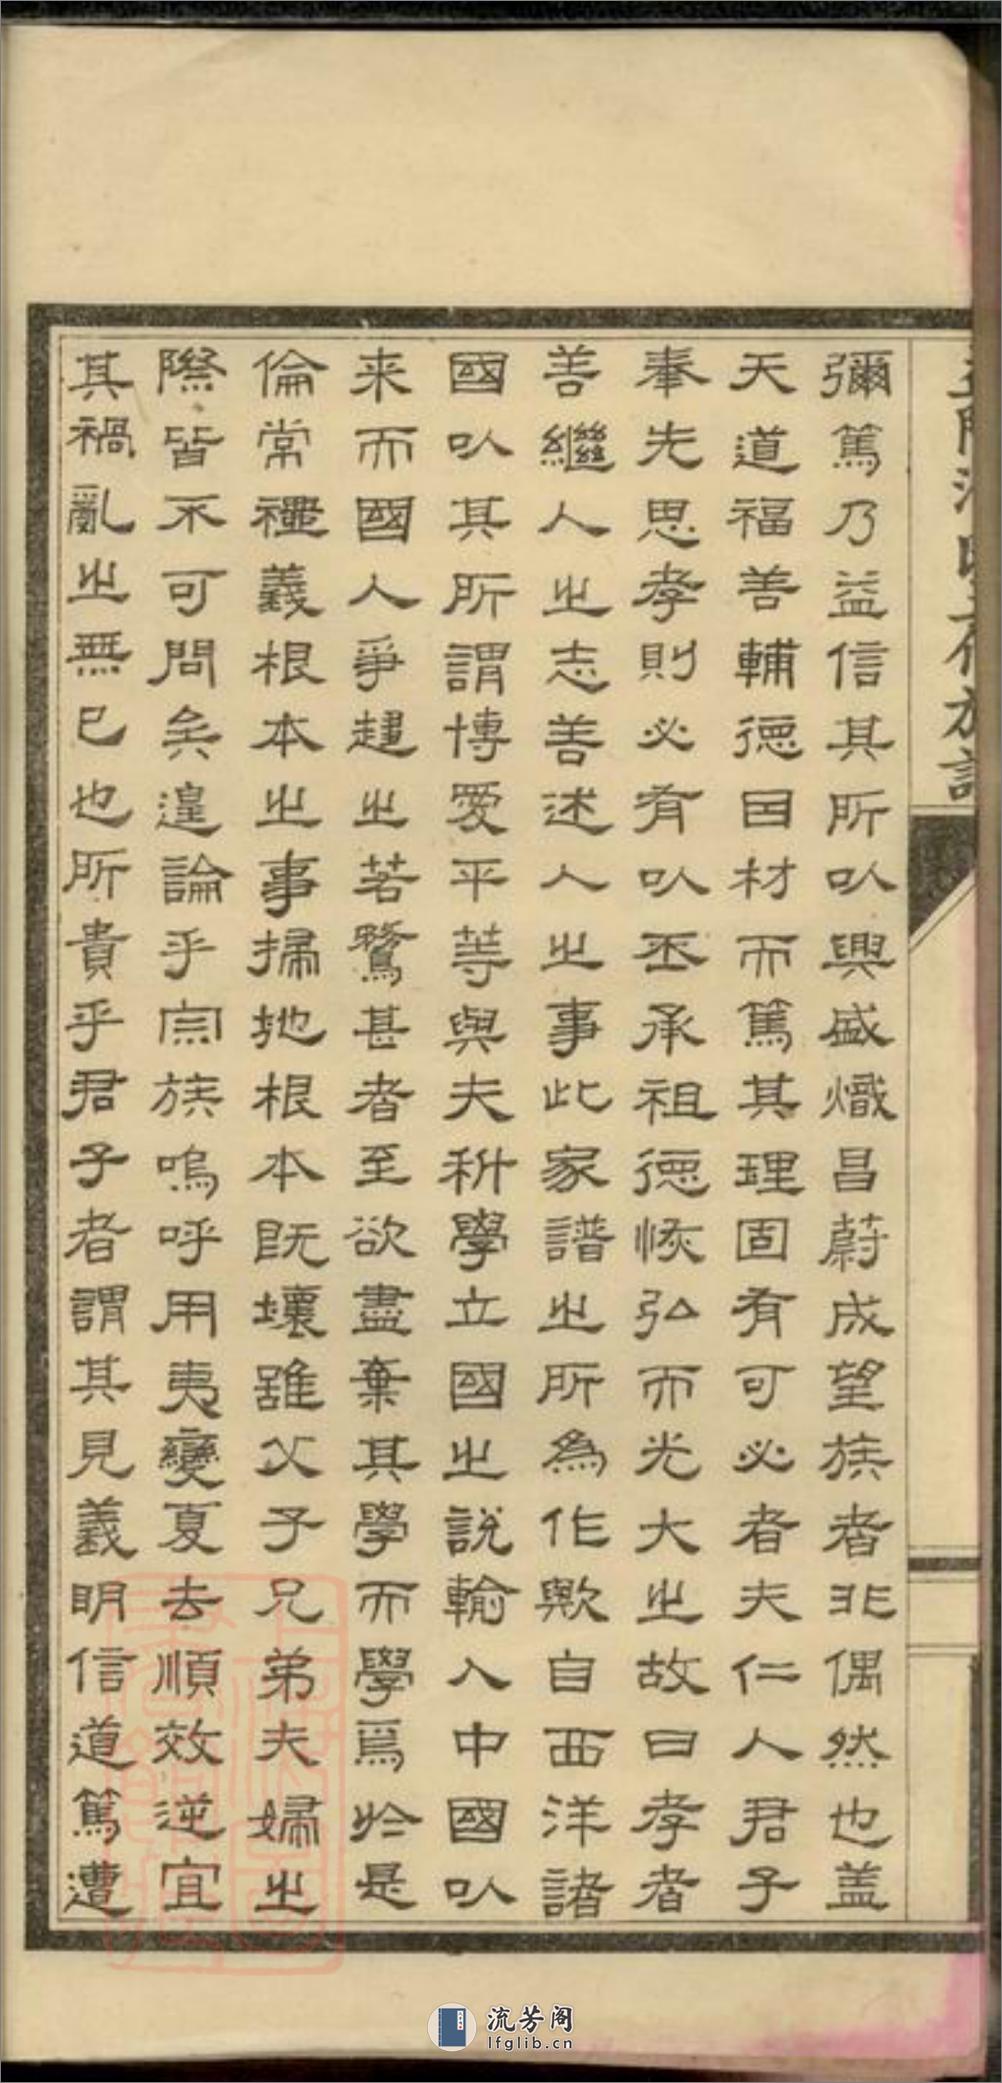 彌篤乃益信其所㕥興盛熾昌蔚成望族者非偶然也盖
天道福善輔德因材而篤其理固有可必者夫仁人君子
奉先思孝則必有㕥丕承祖德恢弘而光大之故曰孝者
善繼人之志善述人之事此家譜之所為作歟自西洋諸
國㕥其所謂博愛平等與夫科學立國之說輸入中國㕥
来而國人爭趨之若鶩甚者至欲盡棄其學而學焉於是
倫常禮義根本之事掃地根本既壞雖父子兄弟夫婦之
際皆不可問矣遑論乎宗族嗚呼用夷變夏去順效逆宜
其禍亂之無已也所貴乎君子者謂其見義明信道篤遭
流芳阁
lfglib.cn